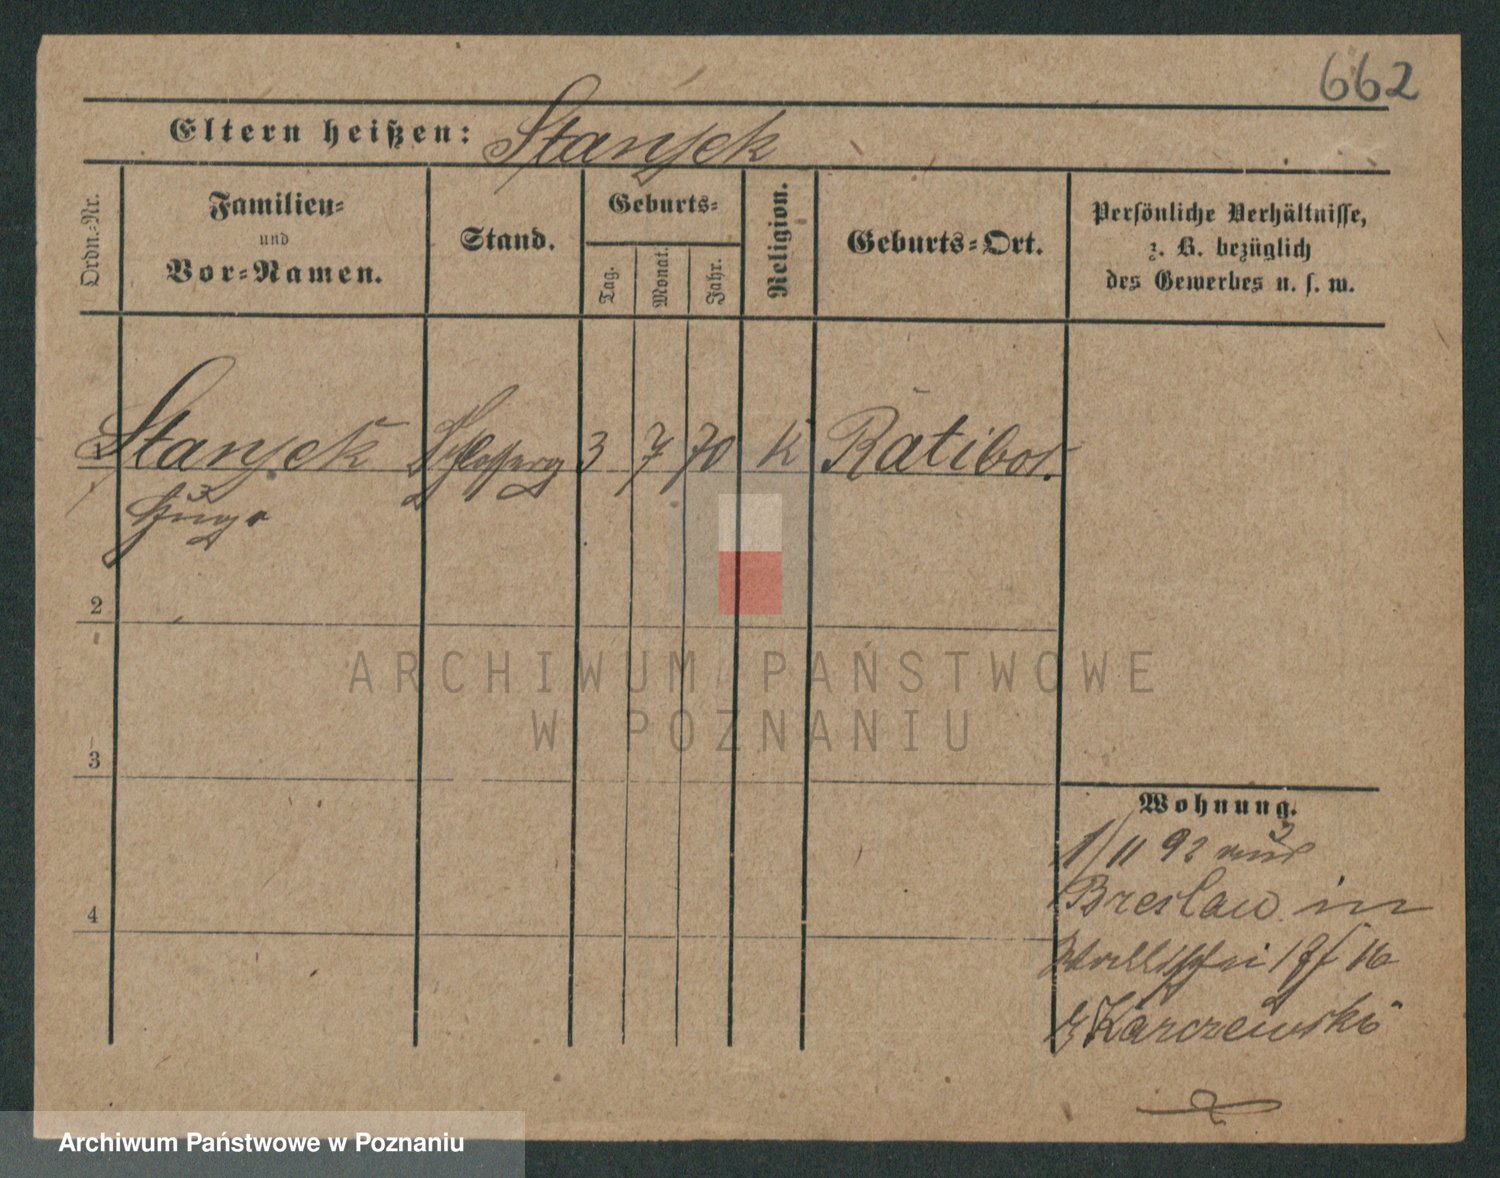 662
Eltern heißen: Stanjek
Ordn.-Nr.
Familien-
und
Vor-Namen.
Stand.
Geburts-
Tag.
Monat.
Jahr.
Religion.
Geburts-Ort.
Persönliche Verhältnisse,
z. B. bezüglich
des Gewerbes u. s. w.
Stanjek 3 7 70 K Ratibor.
Hugo
2
3
4
Wohnung.
1/11 92 aus
Breslau in
Wallischei 16
Karczewski
ARCHIWUM PAŃSTWOWE
W POZNANIU
Archiwum Państwowe w Poznaniu